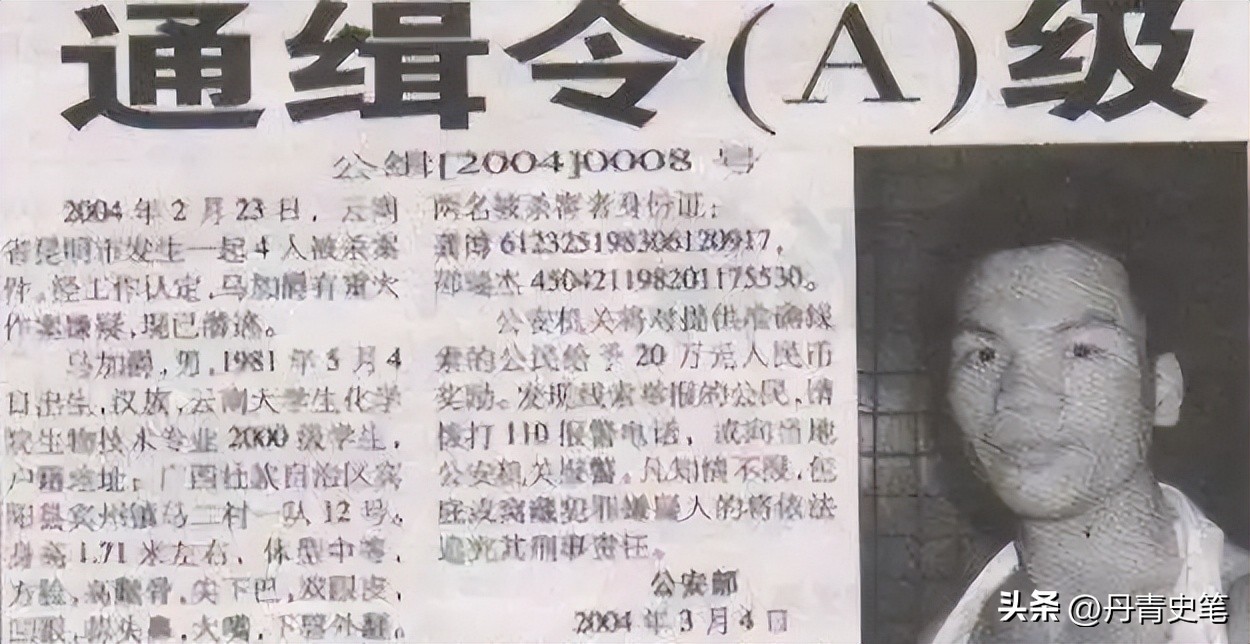 通缉令(A)级
公缉[2004]0008号
2004年2月23日，云南
省昆明市发生一起4人被杀案
件。经工作认定，马加爵有重大
作案嫌疑，现已潜逃。
马加爵，男，1981年5月4
日出生，汉族，云南大学生化学
院生物技术专业2000级学生，
户籍地址：广西壮族自治区宾
阳县宾州镇马二村一队12号。
身高1.71米左右，体型中等，
方脸，高颧骨，尖下巴，双眼皮，
大嘴，下唇外翻。
两名被杀害者身份证：
龚博612325198306120917，
杰450421198201175530。
公安机关将对提供准确线
索的公民给予20万元人民币
奖励。发现线索举报的公民，请
拨打110报警电话，或向当地
公安机关报警。凡知情不报，包
庇或窝藏犯罪嫌疑人的将依法
追究其刑事责任。
公安部
2004年3月4日
头条 @丹青史笔